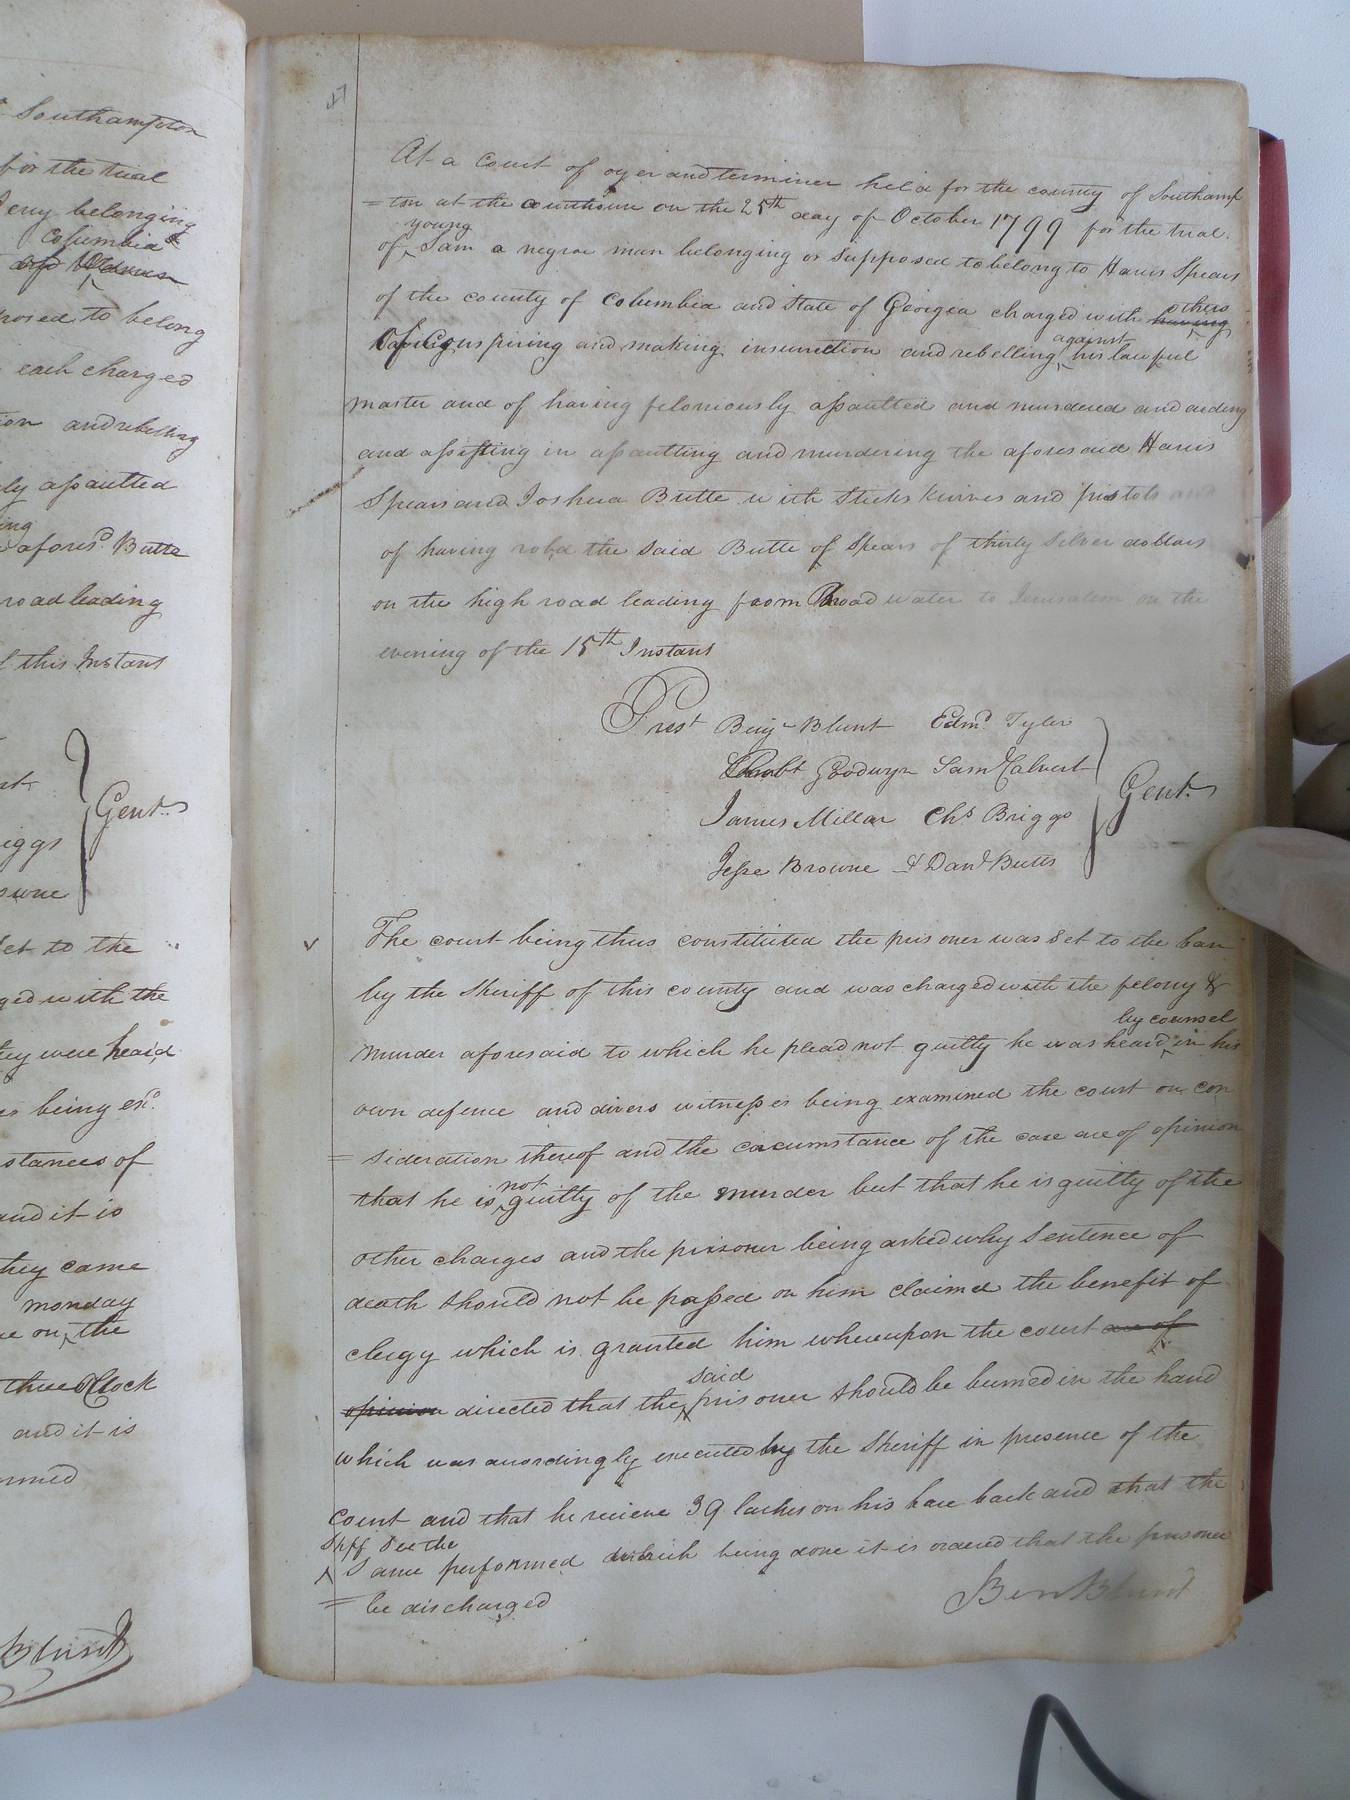 Southampton
for the trial
belonging
Columbia &
posed to belong
each charged
ion and rebelling
ly assaulted
ing
afores.d Butte
road leading
this Instant
Gent.s
iggs
owne
set to the
ged with the
they were heard
es being ex.d
stances of
and it is
they came
monday
on ^ the
three OClock
and it is
rmed
Blunt
47
At a Court of oyer and terminer held for the county of Southamp
= ton at the courthouse on the 25th day of October 1799 for the trial
young
of ^ Sam a negroe man belonging or supposed to belong to Harris Spears
of the county of Columbia and State of Georgia charged with having
others
of Conspiring and making insurrection and rebelling ^ his lawful
against
master and of having feloniously assaulted and murdered and aiding
and assisting in assaulting and murdering the aforesaid Harris
Spears and Joshua Butte with sticks knives and pistols and
of having robd the said Butte of Spears of thirty silver dollars
on the high road leading from Broad water to Jerusalem on the
evening of the 15th Instant
Prest Benj Blunt Edm.d Tyler
Robt Goodwyn Sam Calvert
James Millar Chs Briggs
Jesse Browne & Danl Butts
Gent.s
The court being thus constituted the prisoner was set to the bar
by the Sheriff of this county and was charged with the felony &
by counsel
murder aforesaid to which he plead not guilty he was heard ^ in his
own defence and divers witnesses being examined the court on con
= sideration thereof and the circumstance of the case are of opinion
not
that he is ^ guilty of the murder but that he is guilty of the
other charges and the prisoner being asked why sentence of
death should not be passed on him claimed the benefit of
clergy which is granted him whereupon the court are of
said
opinion directed that the ^ prisoner should be burned in the hand
which was accordingly executed by the Sheriff in presence of the
Court and that he recieve 39 lashes on his bare back and that the
Shff see the
^ same performed which being done it is ordered that the prisoner
= be discharged
Ben Blunt